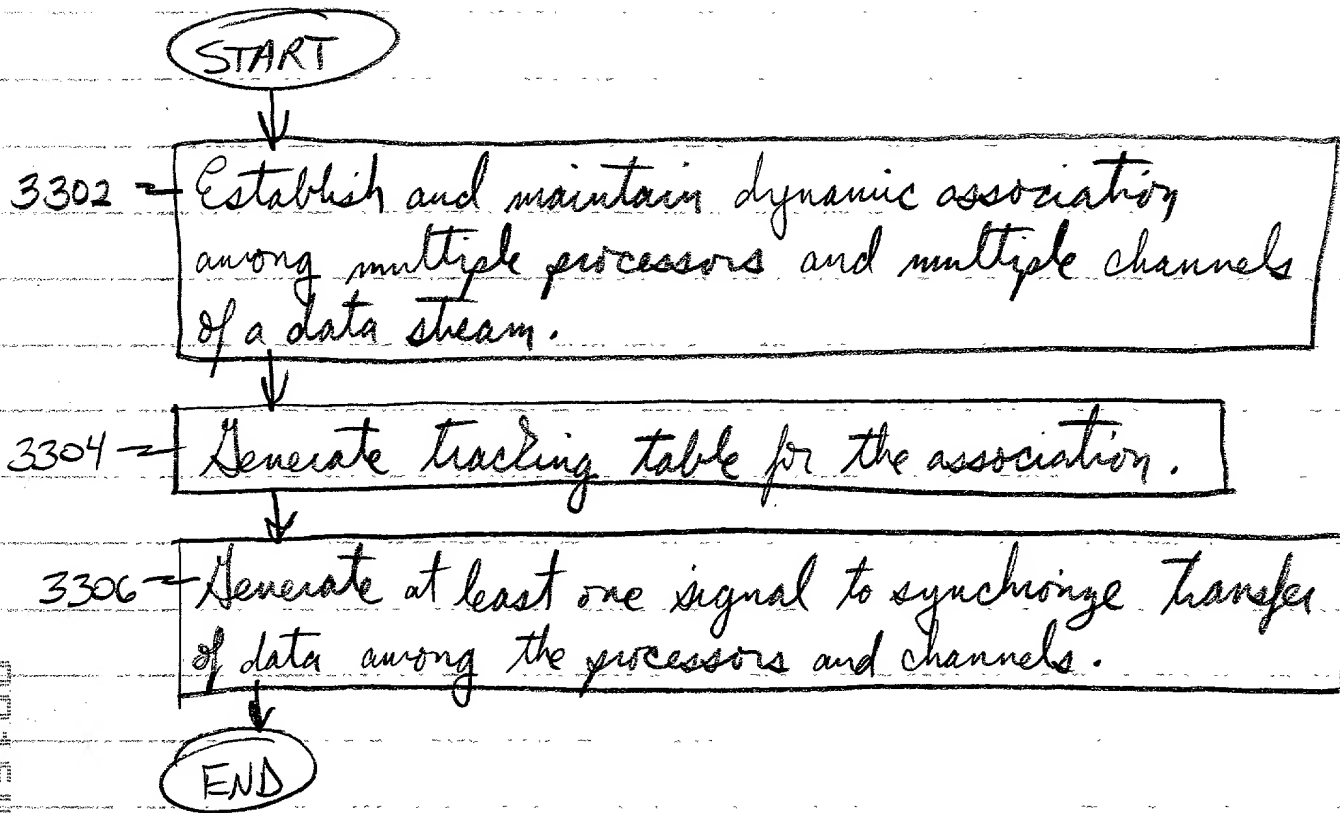 START
3302 Establish and maintain dynamic association
among multiple processors and multiple channels
of a data stream.
3304 Generate tracking table for the association.
3306 Generate at least one signal to synchronze transfer
of data among the processors and channels.
END